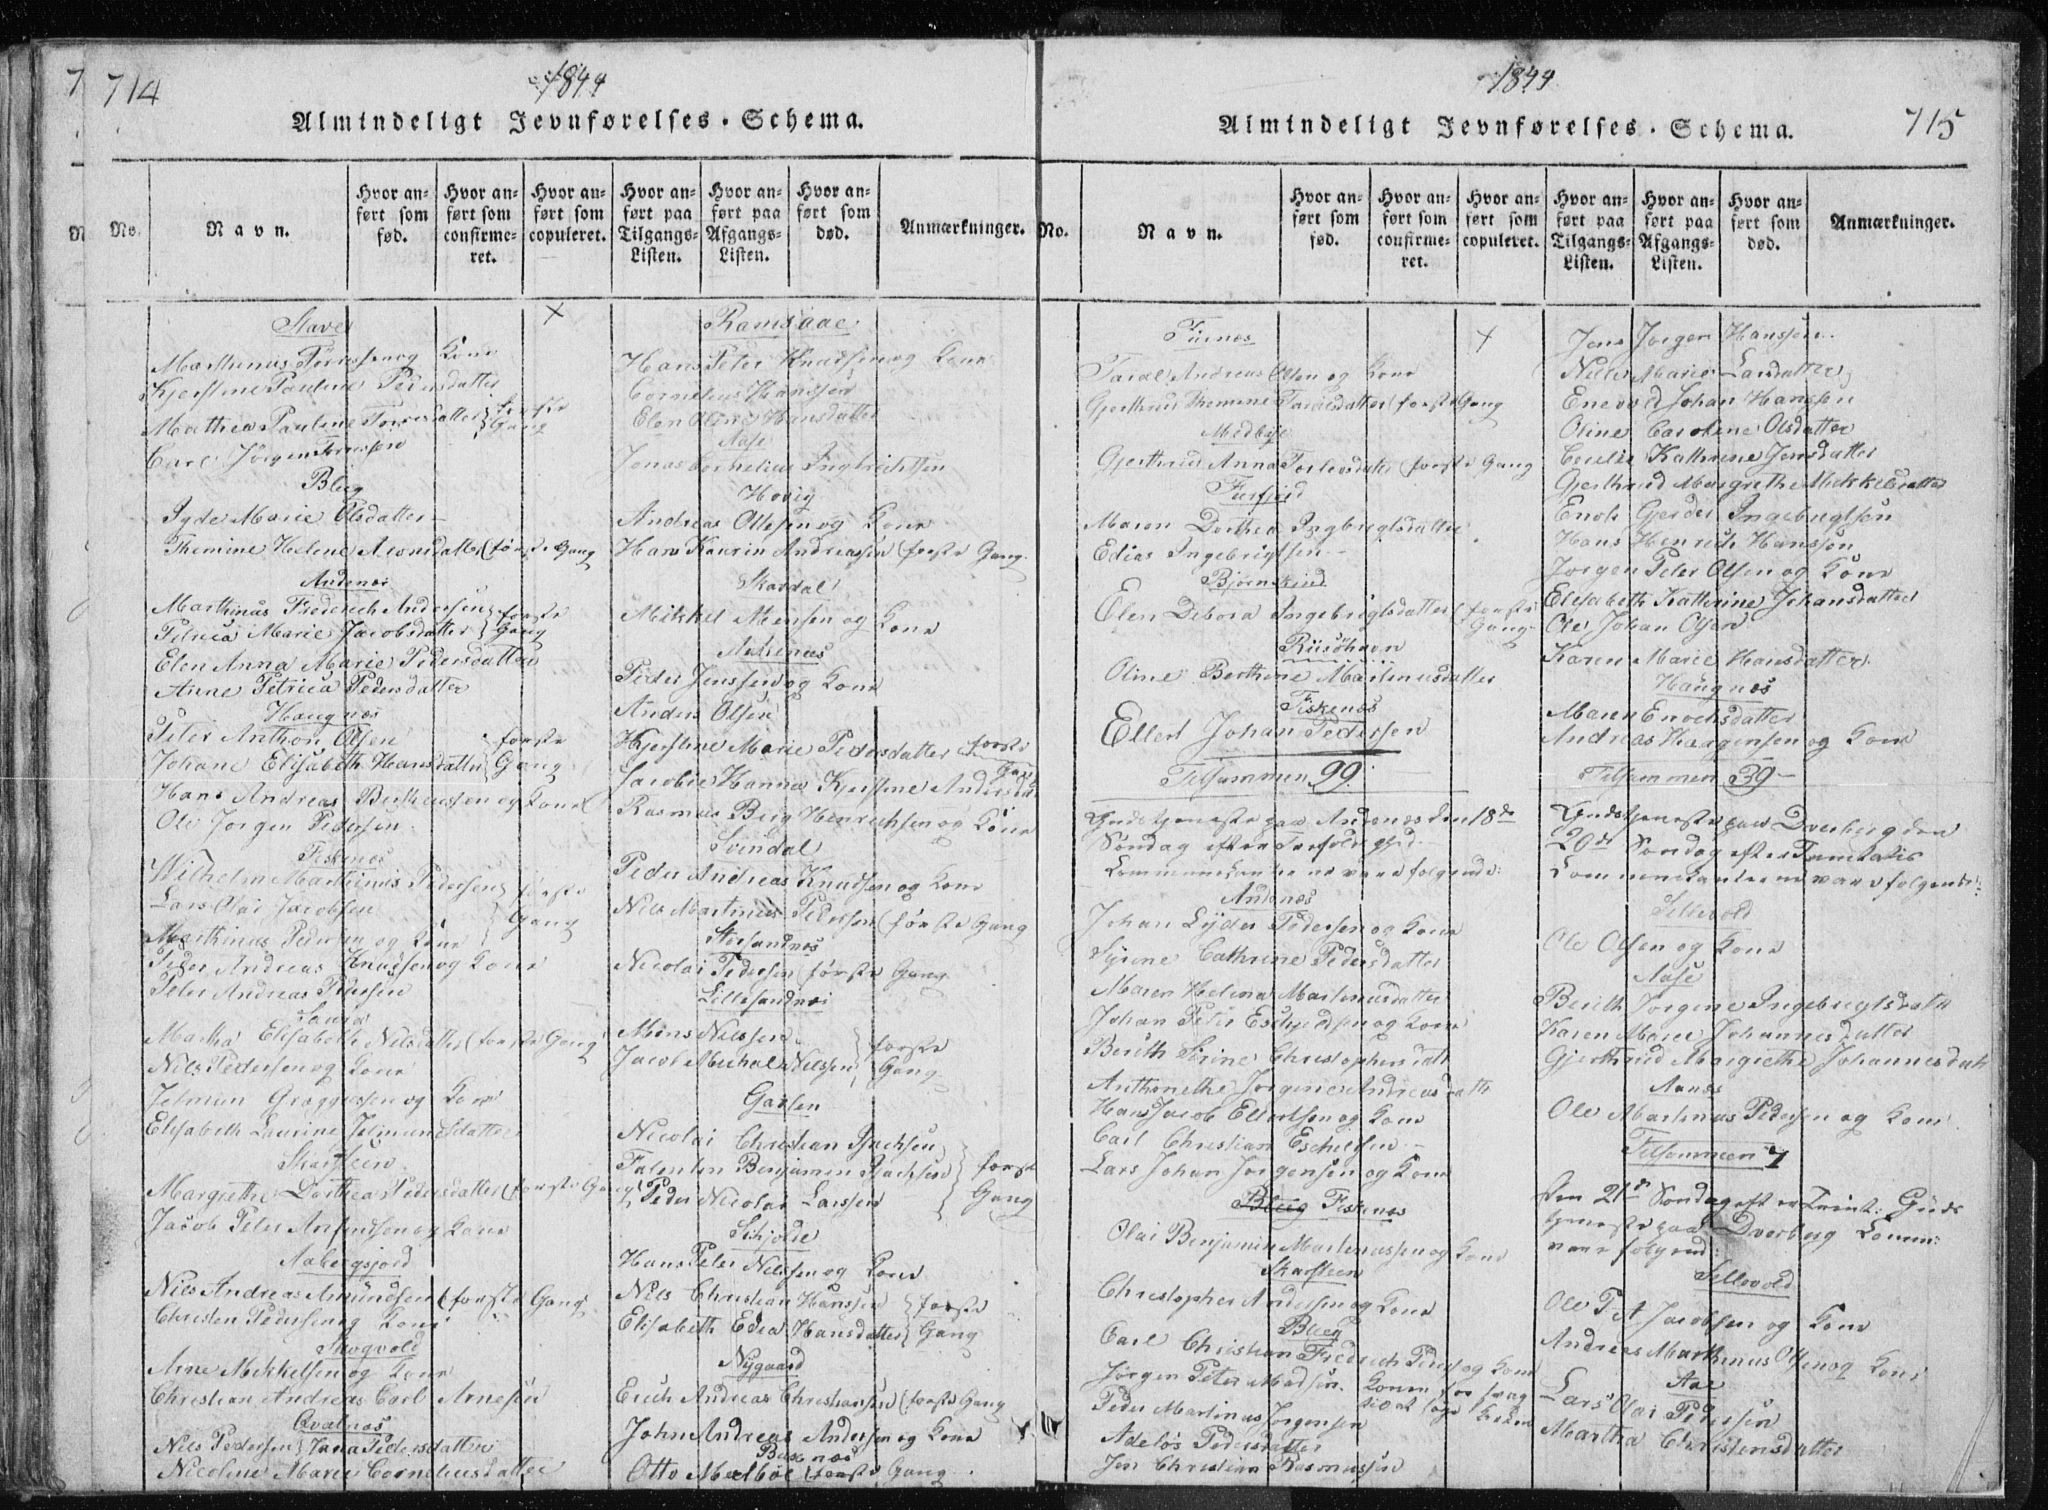 714
1844
Almindeligt Jevnførelses-Schema.
No.
Navn.
Hvor anført som fød.
Hvor anført som confirmeret.
Hvor anført som copuleret.
Hvor anført paa Tilgangs-Listen.
Hvor anført paa Afgangs-Listen.
Hvor anført som død.
Anmærkninger.
Stave
Marthinus Tørresen og Kone
Kjerstine Pauline Pedersdatter
Mathea Pauline Torresdatter første Gang
Carl Jørgen Torresen
Bleig
Marie Olsdatter
Themine Helene Aronsdatter (første Gang
Andenæs
Marthinus Frederich Andersen første
Petrica Marie Jacobsdatter Gang
Elen Anna Marie Pedersdatter
Anne Petrica Pedersdatter
Haugnæs
Peter Anthon Olsen første
Johane Elisabeth Hansdatter Gang
Hans Andreas Bertheussen og Kone
Ole Jørgen Pedersen
Fiskenæs
Wilhelm Marthinus Pedersen første
Lars Olai Jacobsen Gang
Marthinus Pedersen og Kone
Peder Andreas Knudsen og Kone
Peter Andreas Pedersen
Martha Elisabeth Nilsdatter (første Gang
Nils Pedersen og Kone
og Kone
Elisabeth Laurine
Skarsteen
Margrethe Dorthea Pedersdatter (første Gang
Jacob Peter Arntsen og Kone
Aabergsjord
Nils Andreas Amundsen (første Gang
Christen Pedersen og Kone
Skogvold
Arne Mekkelsen og Kone
Christian Andreas Carl Arnesen
Qvalnæs
Nils Pedersen Jana Pedersdatter
Nicoline Marie Corneliusdatter
Ramsaae
Hans Peter Knudsen og Kone
Cornelius Hanssen
Elen Oline Hansdatter
Aase
Jonas Cornelius Ingbrichtsen
Hovig
Andreas Ottesen og Kone
Hans Kaurin Andreassen (første Gang
Skardal
Mikkel Monsen og Kone
Peder Jenssen og Kone
Anders Olsen
Kjerstine Marie Pedersdatter (første Gang
Jacobie Hanna Kjerstine
Rasmus Berg Henrichsen og Kone
Svindal
Peder Andreas Knudsen og Kone
Nils Martinus Pedersen (første Gang
Storsandnæs
Nicolai Pedersen (første Gang
Lillesandnæs
Mons Nilssen første
Jacob Mechal Nilssen Gang
Garten
Nicolai Christian Isachsen
Falentin Benjamin Isachsen første
Peder Nicolai Larssen Gang
Schjolde
Hans Peter Nilssen og Kone
Nils Christian Hanssen første
Elisabeth Edea Hansdatter Gang
Nygaard
Erich Andreas Christiansen (første Gang
John Andreas Andersen og Kone
Otto Medbøe (første Gang
1844
715
Almindeligt Jevnførelses-Schema.
No.
Navn.
Hvor anført som fød.
Hvor anført som confirmeret.
Hvor anført som copuleret.
Hvor anført paa Tilgangs-Listen.
Hvor anført paa Afgangs-Listen.
Hvor anført som død.
Anmærkninger.
Taral Andreas Olsen og Kone
Gjerthrud Themine Taralsdatter (første Gang
Medbye
Gjerthrud Anna Torlevsdatter (første Gang
Fiirfjord
Maren Dorthea Ingbrigtsdatter
Edias Ingebrigtsen
Bjørnskind
Elen Debora Ingebrigtsdatter (første Gang
Riisøhavn
Oline Berthine Martinusdatter
Fiskenæs
Ellert Johan Pedersen
Tilsammen 99
Gudstjeneste paa Andenæs den 18de
Søndag efter Trefoldighed
Communicanterne vare følgende:
Andenæs
Johan Lyder Pedersen og Kone
Syrine Cathrine Pedersdatter
Maren Helena Martinusdatter
Johan Peter Eschildsen og Kone
Berith Sirine Christophersdatt
Anthonethe Jørgine Andreasdatt
Hans Jacob Ellertsen og Kone
Carl Christian Eschelsen
Lars Johan Jørgensen og Kone
Bleig Fiskenæs
Olai Benjamin Martinussen og Kone
Skarsteen
Christopher Andersen og Kone
Bleig
Carl Christian Fredrich Peders og Kone
Jørgen Peter Madsen
Peder Martinus Jørgensen
Adelös Pedersdatter
Jens Christian Rasmussen
Jens Jørgen Hanssen
Nille Marie Larsdatter
Enevold Johan Hanssen
Oline Caroline Olsdatter
Cecilie Kathrine Jensdatter
Gjerthrud Margrethe Mekkelsdatter
Enok Gerder Ingebrigtsen
Hans Henrich Hanssen
Jørgen Peter Olsen og Kone
Elisabeth Kathrine Johansdatter
Ole Johan Olsen
Karen Marie Hansdatter
Haugnæs
Maren Enochsdatter
Andreas Haagensen og Kone
Tilsammen 39
Gudstjeneste paa Dverberg den
20de Søndag efter Trinitatis
Communicanterne vare følgende:
Sellevold
Ole Olsen og Kone
Aase
Berith Jørgine Ingebrigtsdatt
Karen Marie Johannesdatter
Gjerthrud Margrethe Johannesdatt
Aanæs
Ole Martinus Pedersen og Kone
Tilsammen 7
Den 21de Søndag efter Trinit: Guds
tjeneste paa Dverberg Comm:
vare følgend:
Sellevold
Ole P A Jacobsen og Kone
Andreas Marthinus Olsen og Kone
Aae
Lars Olai Pedersen
Martha Christensdatter